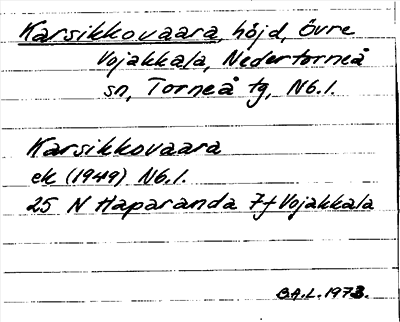 Karsikkovaara, höjd, Övre
Vojakkala, Nedertorneå
sn, Torneå tg, N6.1.
Karsikkovaara
ek (1949) N6.1.
25 N Haparanda 7f Vojakkala
B.A.L. 1973.